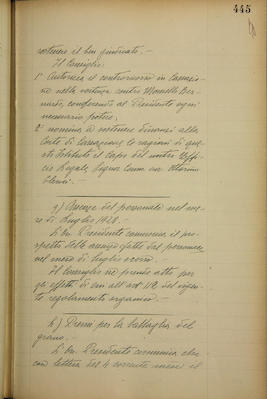 445
sostenere il ben giudicato. –
Il Consiglio:
1° Autorizza il controricorso in Cassazio-
ne nella vertenza contro Mannello Ber-
nardo, conferendo al Presidente ogni
necessario potere;
2° nomina a sostenere dinanzi alla
Corte di Cassazione le ragioni di que-
sto Istituto il Capo del nostro Uffi-
cio Legale, Signor Comm. avv.
g) Assenze del personale nel me-
se di Luglio 1928. –
L'On. Presidente comunica il pro-
spetto delle assenze fatte dal personale
nel mese di luglio scorso. –
Il Consiglio ne prende atto per
gli effetti di cui all'art. 112 del vigen-
te regolamento organico. –
h) Premi per la battaglia del
grano. –
L'On. Presidente comunica che
con lettera del 4 corrente mese il